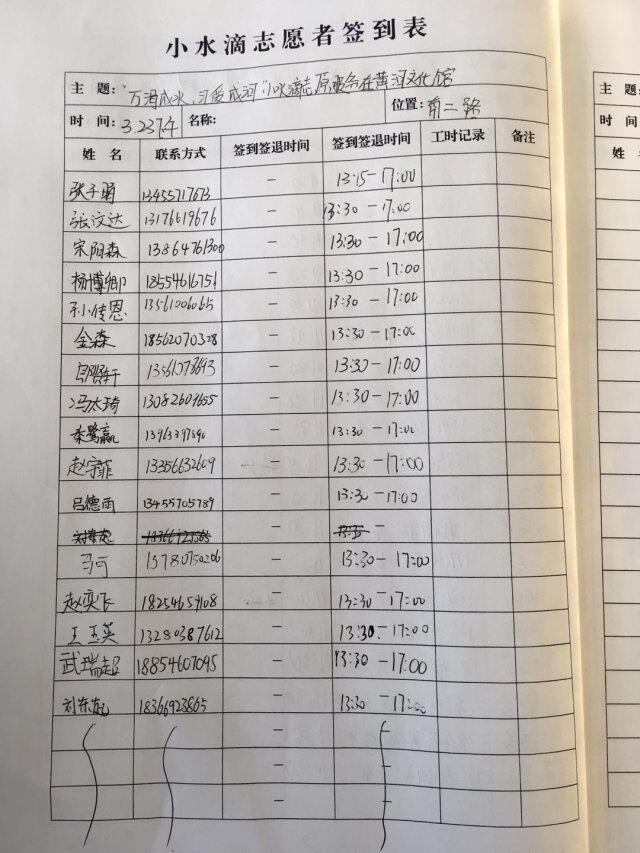 小水滴志愿者签到表
主 题：“万涓成水，汇爱成河”小水滴志愿服务在黄河文化馆
时 间：3.23下午 名称： 位置：南二路
姓 名 联系方式 签到签退时间 签到签退时间 工时记录 备注
张子珺 13455717673 – 13:15-17:00
张汶达 13176619676 – 13:30-17:00
宋阳森 13864761300 – 13:30-17:00
杨博卿 18554616751 – 13:30-17:00
孙传恩 13561006065 – 13:30-17:00
金森 18562070328 – 13:30-17:00
13561073693 – 13:30-17:00
冯太琦 13082609655 – 13:30-17:00
秦鹭赢 – 13:30-17:00
赵宇菲 13356632609 – 13:30-17:00
吕德雨 13455705789 – 13:30-17:00
– 13:30 –
马河 13780750206 – 13:30-17:00
赵奕飞 18254659108 – 13:30-17:00
王玉英 13280387612 – 13:30-17:00
武瑞超 18854607095 – 13:30-17:00
刘东起 18366923865 – 13:30-17:00
– –
– –
– –